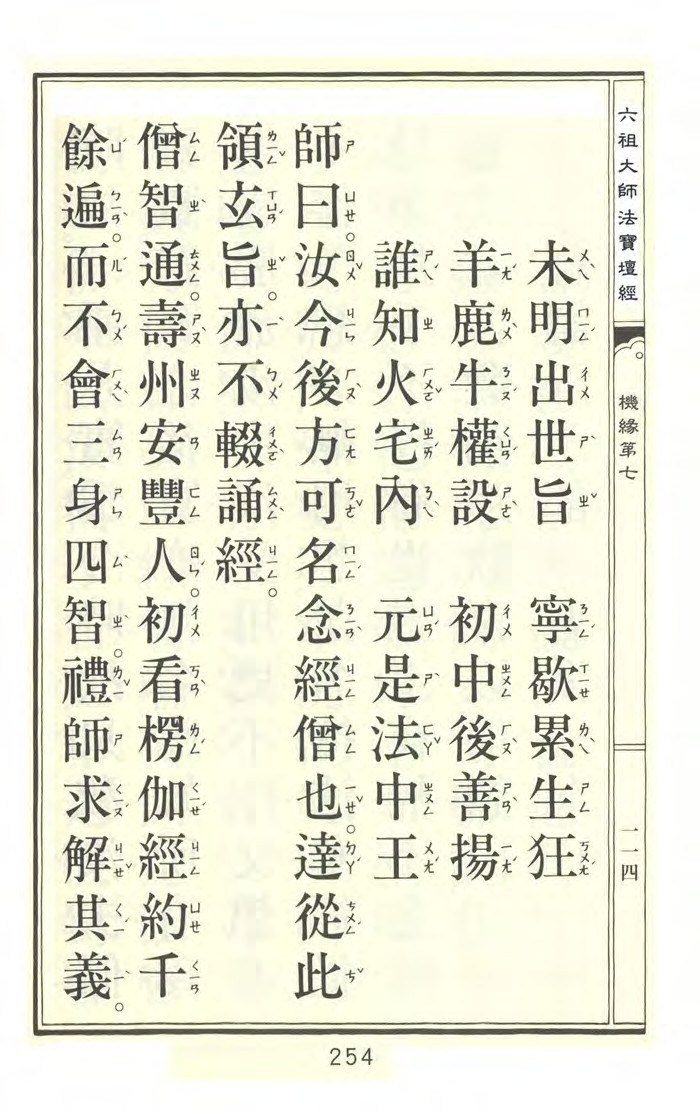 六祖大師法寶壇經
機緣第七
一一四
未明出世旨　寧歇累生狂
羊鹿牛權設　初中後善揚
誰知火宅內　元是法中王
師曰。汝今後方可名念經僧也。達從此
領玄旨。亦不輟誦經。
僧智通。壽州安豐人。初看楞伽經約千
餘遍。而不會三身四智。禮師求解其義。
254